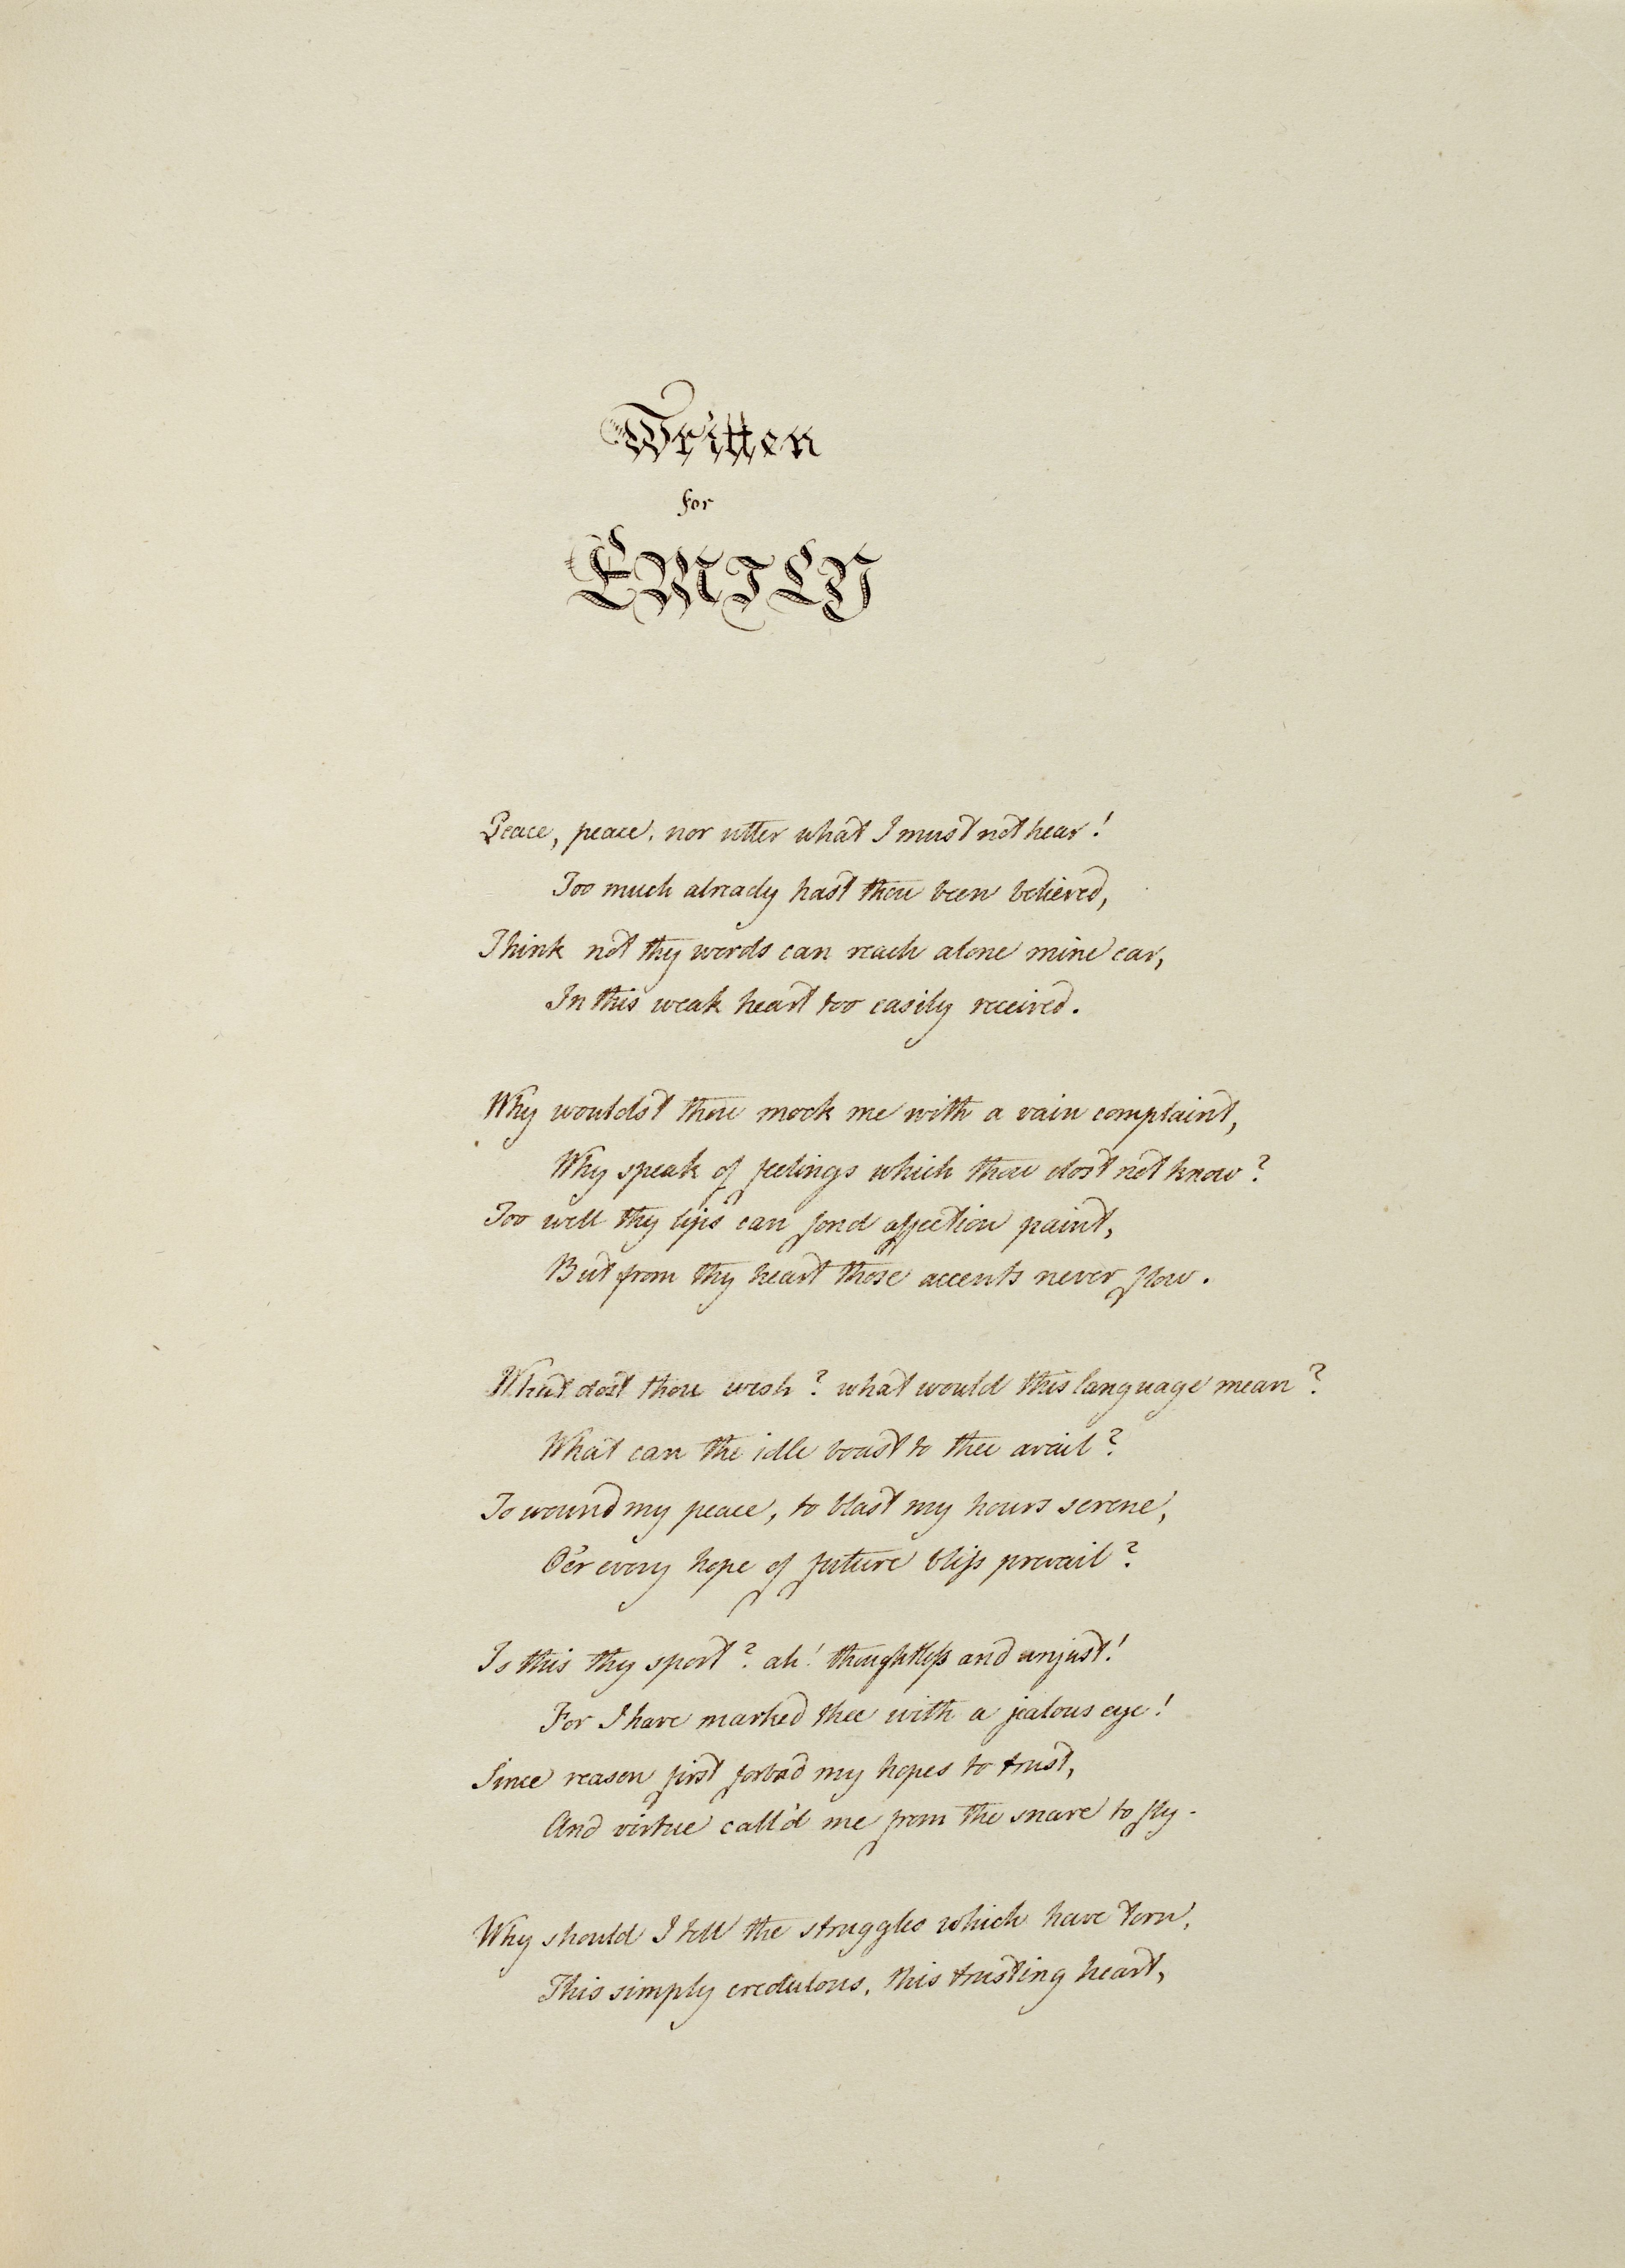 Written
for
EMILY
Peace, peace, nor utter what I must not hear!
Too much already hast thou been believed,
Think not thy words can reach alone mine ear,
In this weak heart too easily received.
Why wouldst thou mock me with a vain complaint,
Why speak of feelings which thou dost not know?
Too well thy lips can fond affection paint,
But from thy heart those accents never flow.
What dost thou wish? what would this language mean?
What can the idle boast to thee avail?
To wound my peace, to blast my hours serene,
O'er every hope of future bliſs prevail?
Is this thy sport? ah! thoughtleſs and unjust!
For I have marked thee with a jealous eye!
Since reason first forbad my hopes to trust,
And virtue call'd me from the snare to fly.
Why should I tell the struggles which have torn,
This simply credulous, this trusting heart,